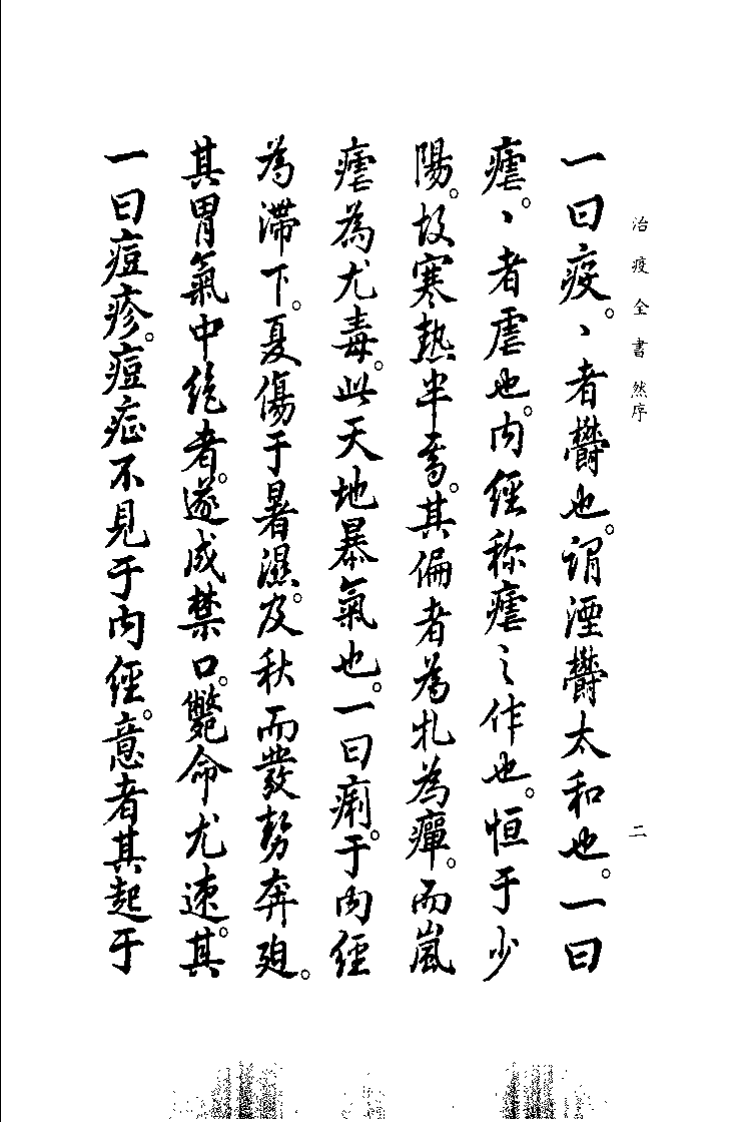 治疫全書 然序 二
一曰疫。丶者鬱也。謂湮鬱太和也。一曰
瘧。丶者虐也。內經称瘧之作也。恒于少
陽。故寒熱半焉。其偏者為札為癉。而嵐
瘧為尤毒。此天地暴氣也。一曰痢。于內經
為滯下。夏傷于暑濕。及秋而發勢奔迫。
其胃氣中絶者。遂成禁口。斃命尤速。其
一曰痘疹。痘症不見于內經。意者其起于